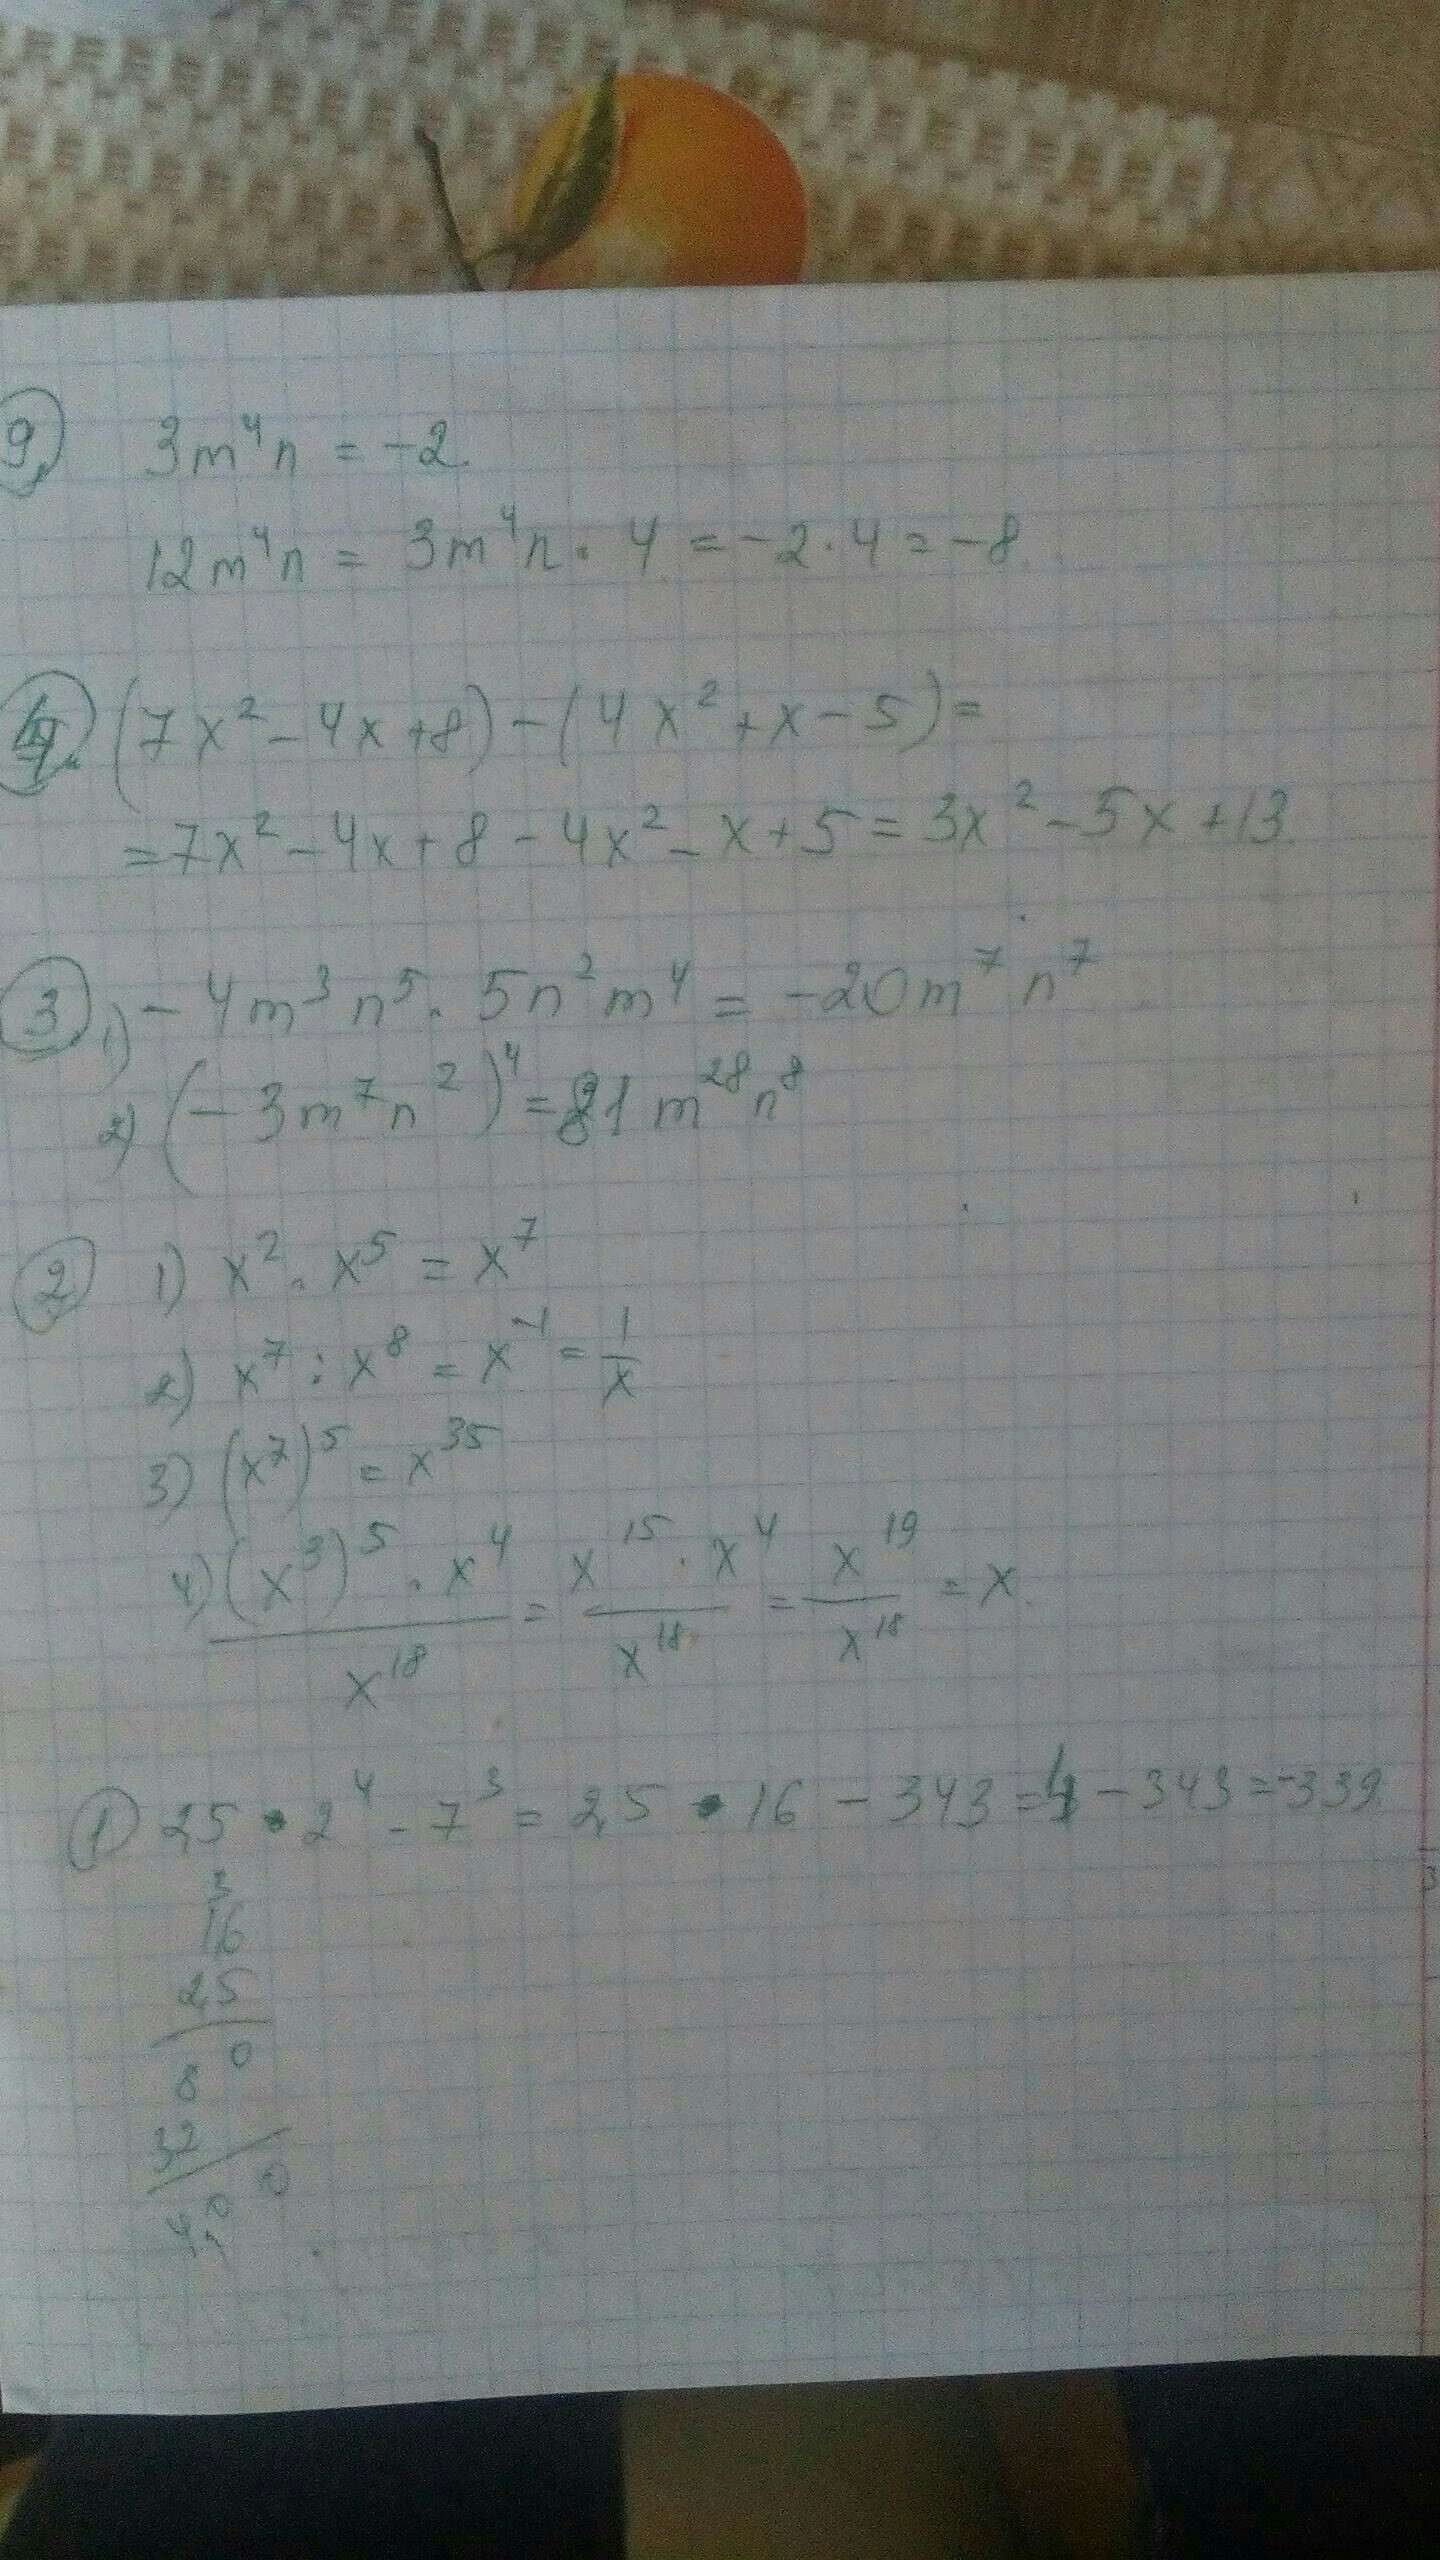 9. 3m⁴n = -2
12m⁴n = 3m⁴n · 4 = -2 · 4 = -8.
4. (7x² - 4x + 8) - (4x² + x - 5) =
= 7x² - 4x + 8 - 4x² - x + 5 = 3x² - 5x + 13
3. 1) -4m³n⁵ · 5n²m⁴ = -20m⁷n⁷
2) (-3m⁷n²)⁴ = 81m²⁸n⁸
2 1) x² · x⁵ = x⁷
2) x⁷ : x⁸ = x⁻¹ = 1/x
3) (x⁷)⁵ = x³⁵
4) (x³)⁵ · x⁴ / x¹⁸ = x¹⁵ · x⁴ / x¹⁸ = x¹⁹ / x¹⁸ = x.
1 2,5 · 2⁴ - 7³ = 2,5 · 16 - 343 = 4 - 343 = -339.
3
16
2,5
80
32
4,00